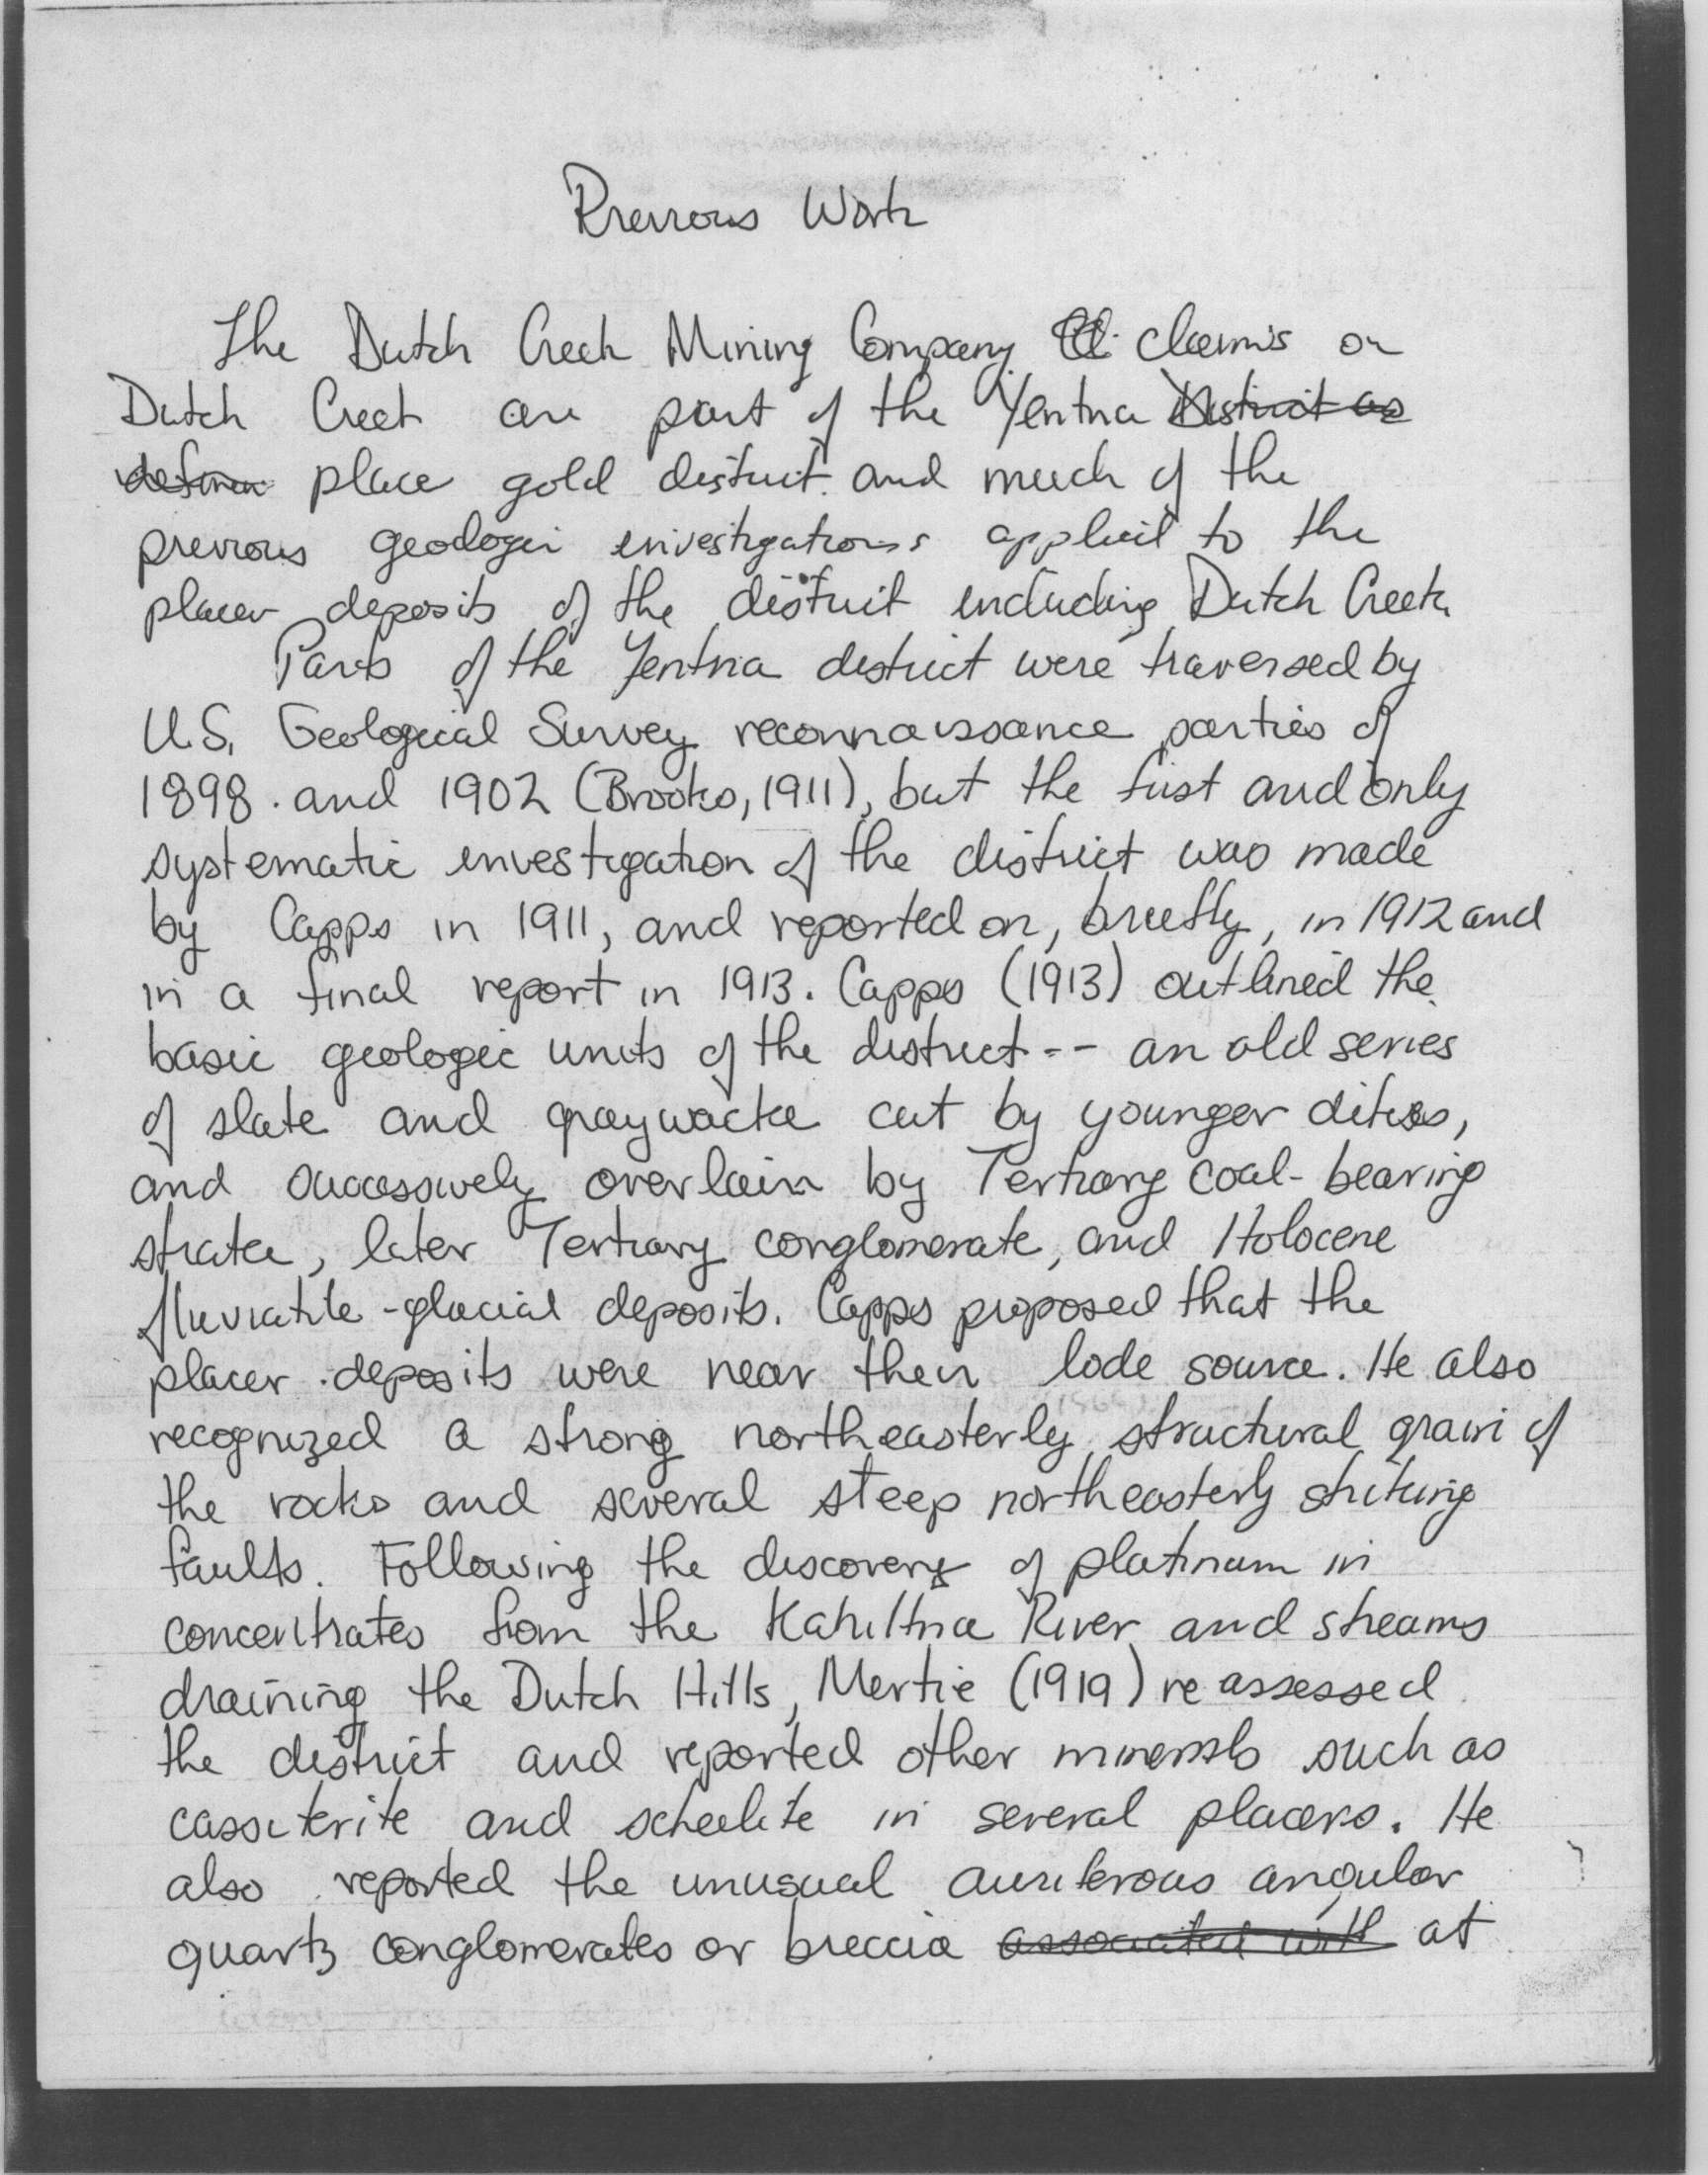 Previous Work
The Dutch Creek Mining Company claims on
Dutch Creek are part of the Yentna District as
define place gold district and much of the
previous geologic investigations applied to the
placer deposits of the district including Dutch Creek.
Parts of the Yentna district were traversed by
U.S. Geological Survey reconnaissance parties of
1898 and 1902 (Brooks, 1911), but the first and only
systematic investigation of the district was made
by Capps in 1911, and reported on, briefly, in 1912 and
in a final report in 1913. Capps (1913) outlined the
basic geologic units of the district -- an old series
of slate and graywacke cut by younger dikes,
and successively overlain by Tertiary coal-bearing
strata, later Tertiary conglomerate, and Holocene
fluviatile-glacial deposits. Capps proposed that the
placer deposits were near their lode source. He also
recognized a strong northeasterly structural grain of
the rocks and several steep northeasterly striking
faults. Following the discovery of platinum in
concentrates from the Kahiltna River and streams
draining the Dutch Hills, Mertie (1919) reassessed
the district and reported other minerals such as
cassiterite and scheelite in several placers. He
also reported the unusual auriferous angular
quartz conglomerates or breccia associated with at